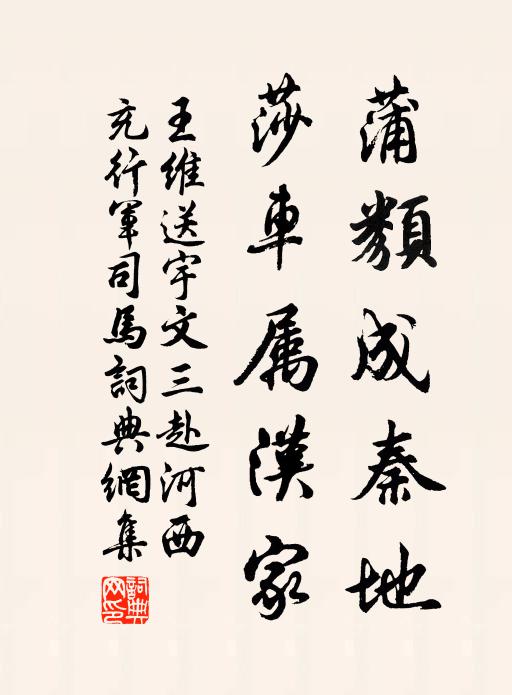 蒲類成秦地
莎車属漢家
王維送宇文三赴河西
充行軍司馬詞典網集
詞典
网印